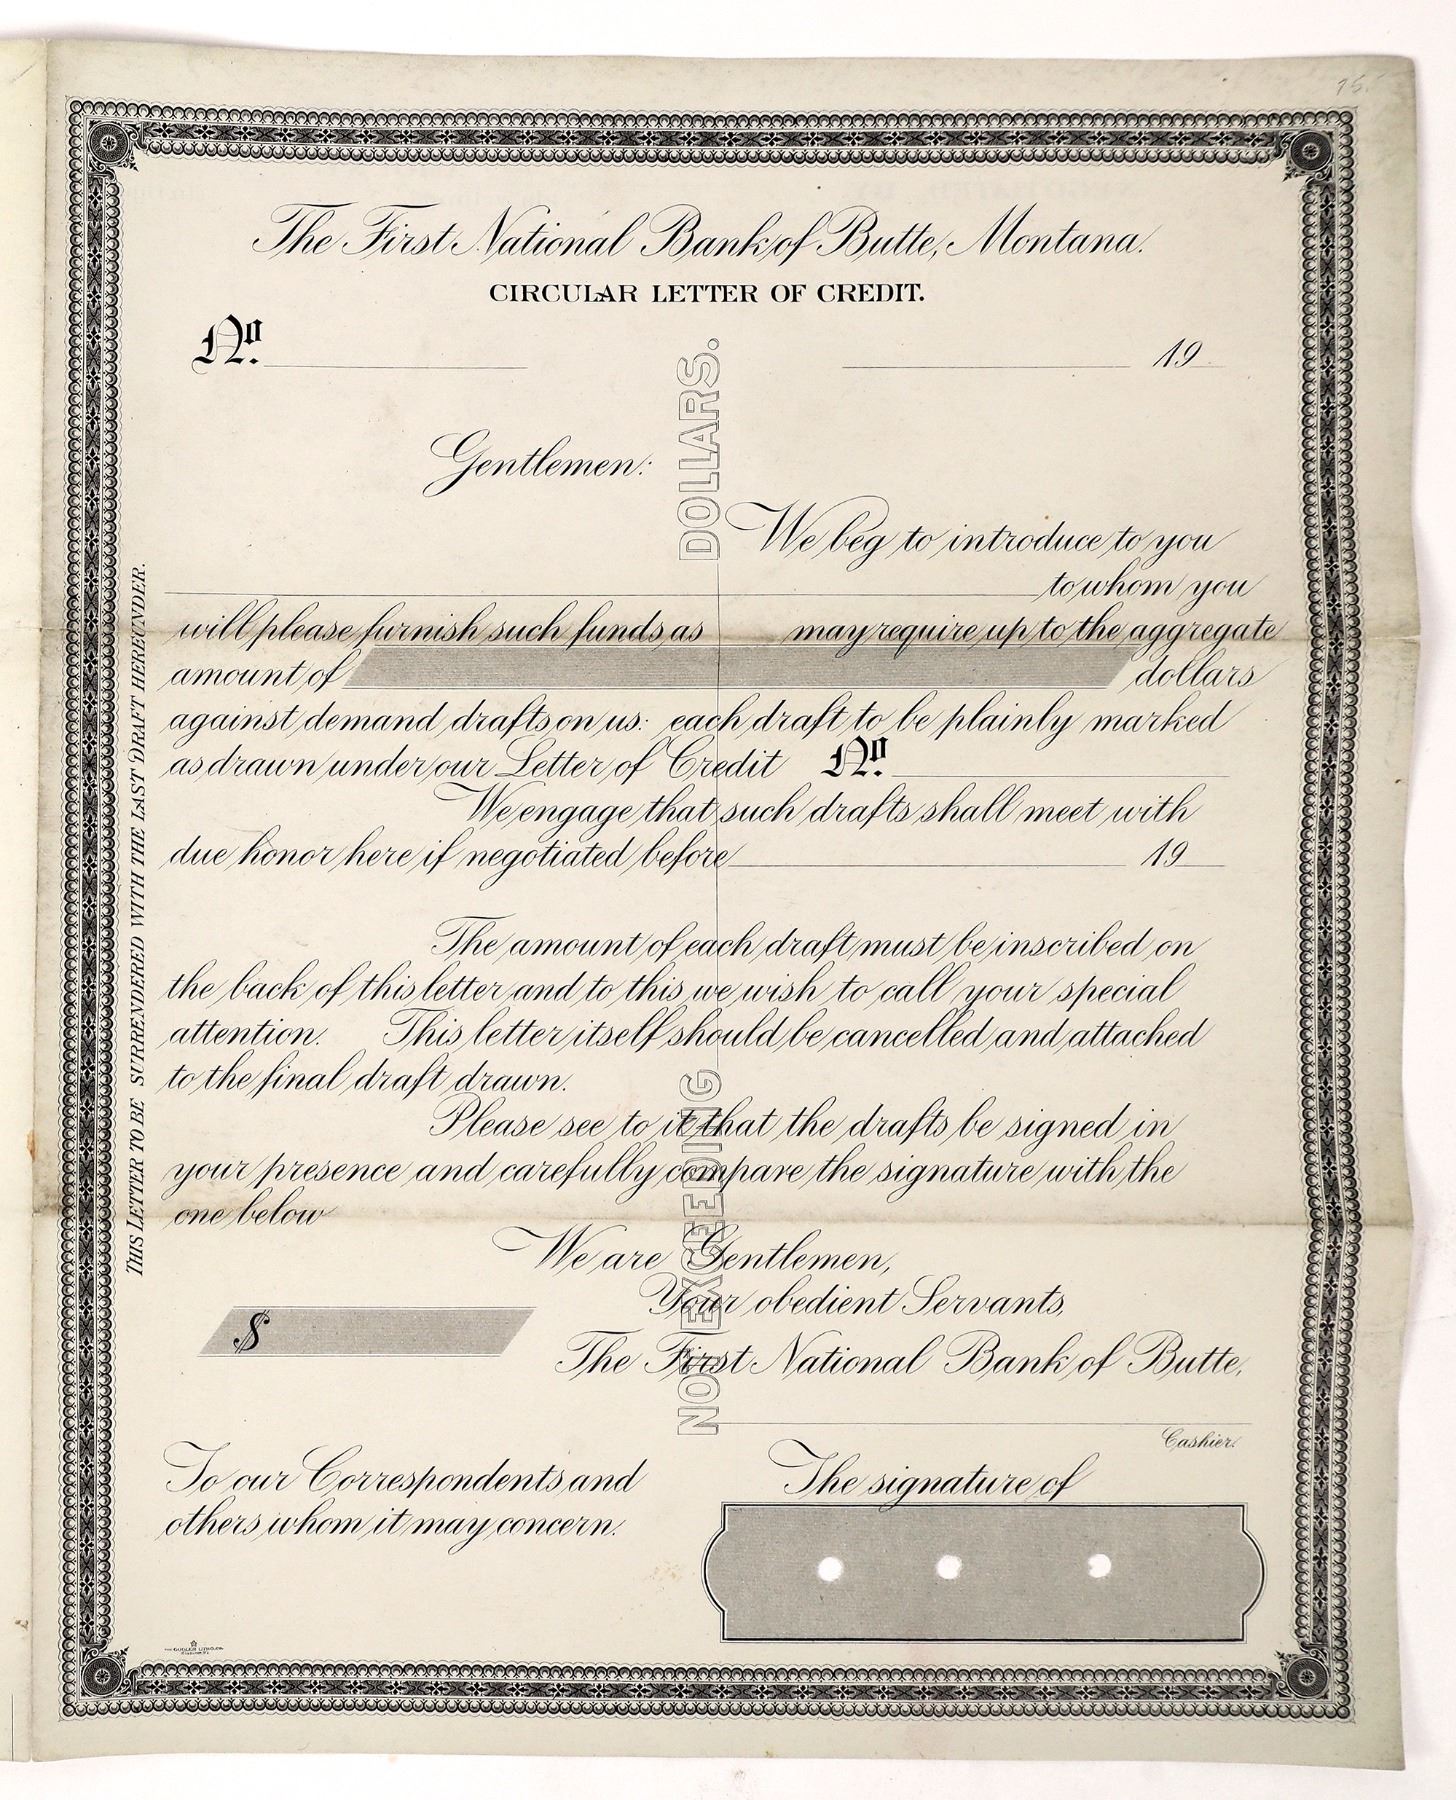 75.
The First National Bank of Butte, Montana.
CIRCULAR LETTER OF CREDIT.
No. 19
Gentlemen:
We beg to introduce to you
to whom you
will please furnish such funds as may require up to the aggregate
amount of dollars
against demand drafts on us: each draft to be plainly marked
as drawn under our Letter of Credit No.
We engage that such drafts shall meet with
due honor here if negotiated before 19
The amount of each draft must be inscribed on
the back of this letter and to this we wish to call your special
attention. This letter itself should be cancelled and attached
to the final draft drawn.
Please see to it that the drafts be signed in
your presence and carefully compare the signature with the
one below
We are Gentlemen,
Your obedient Servants,
$
The First National Bank of Butte,
Cashier.
To our Correspondents and
others whom it may concern.
The signature of
THIS LETTER TO BE SURRENDERED WITH THE LAST DRAFT HEREUNDER.
NOT EXCEEDING DOLLARS.
GUGLER LITHO. CO.